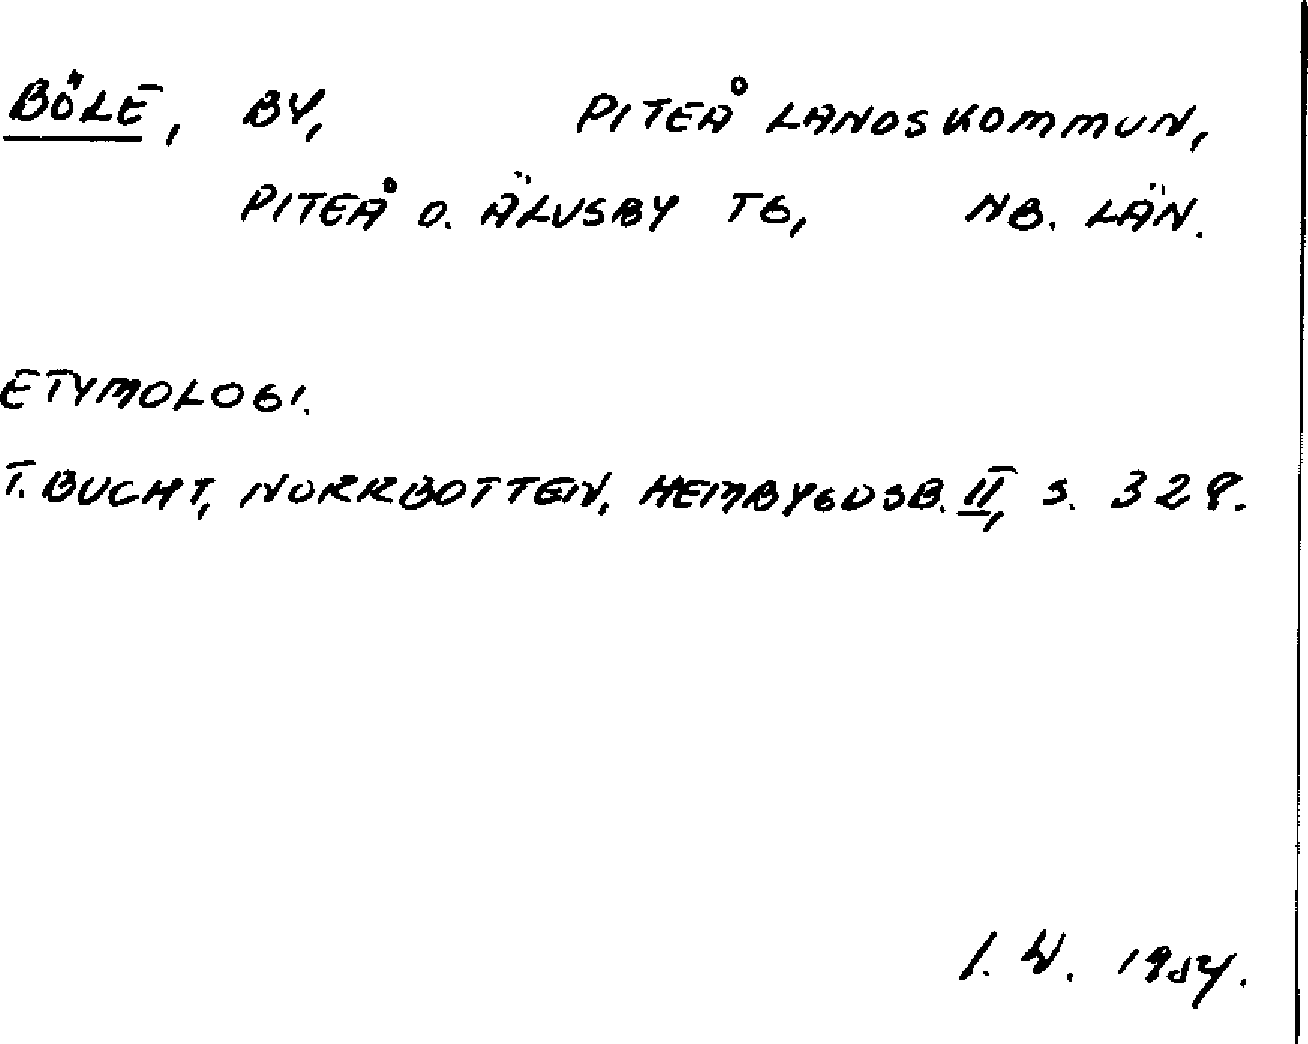 BÖLE, BY, PITEÅ LANDSKOMMUN,
PITEÅ O. ÄLVSBY TG, NB. LÄN.
ETYMOLOGI.
T. BUCHT, NORRBOTTEN, HEMBYGDSB. II, S. 328.
I. W. 1954.